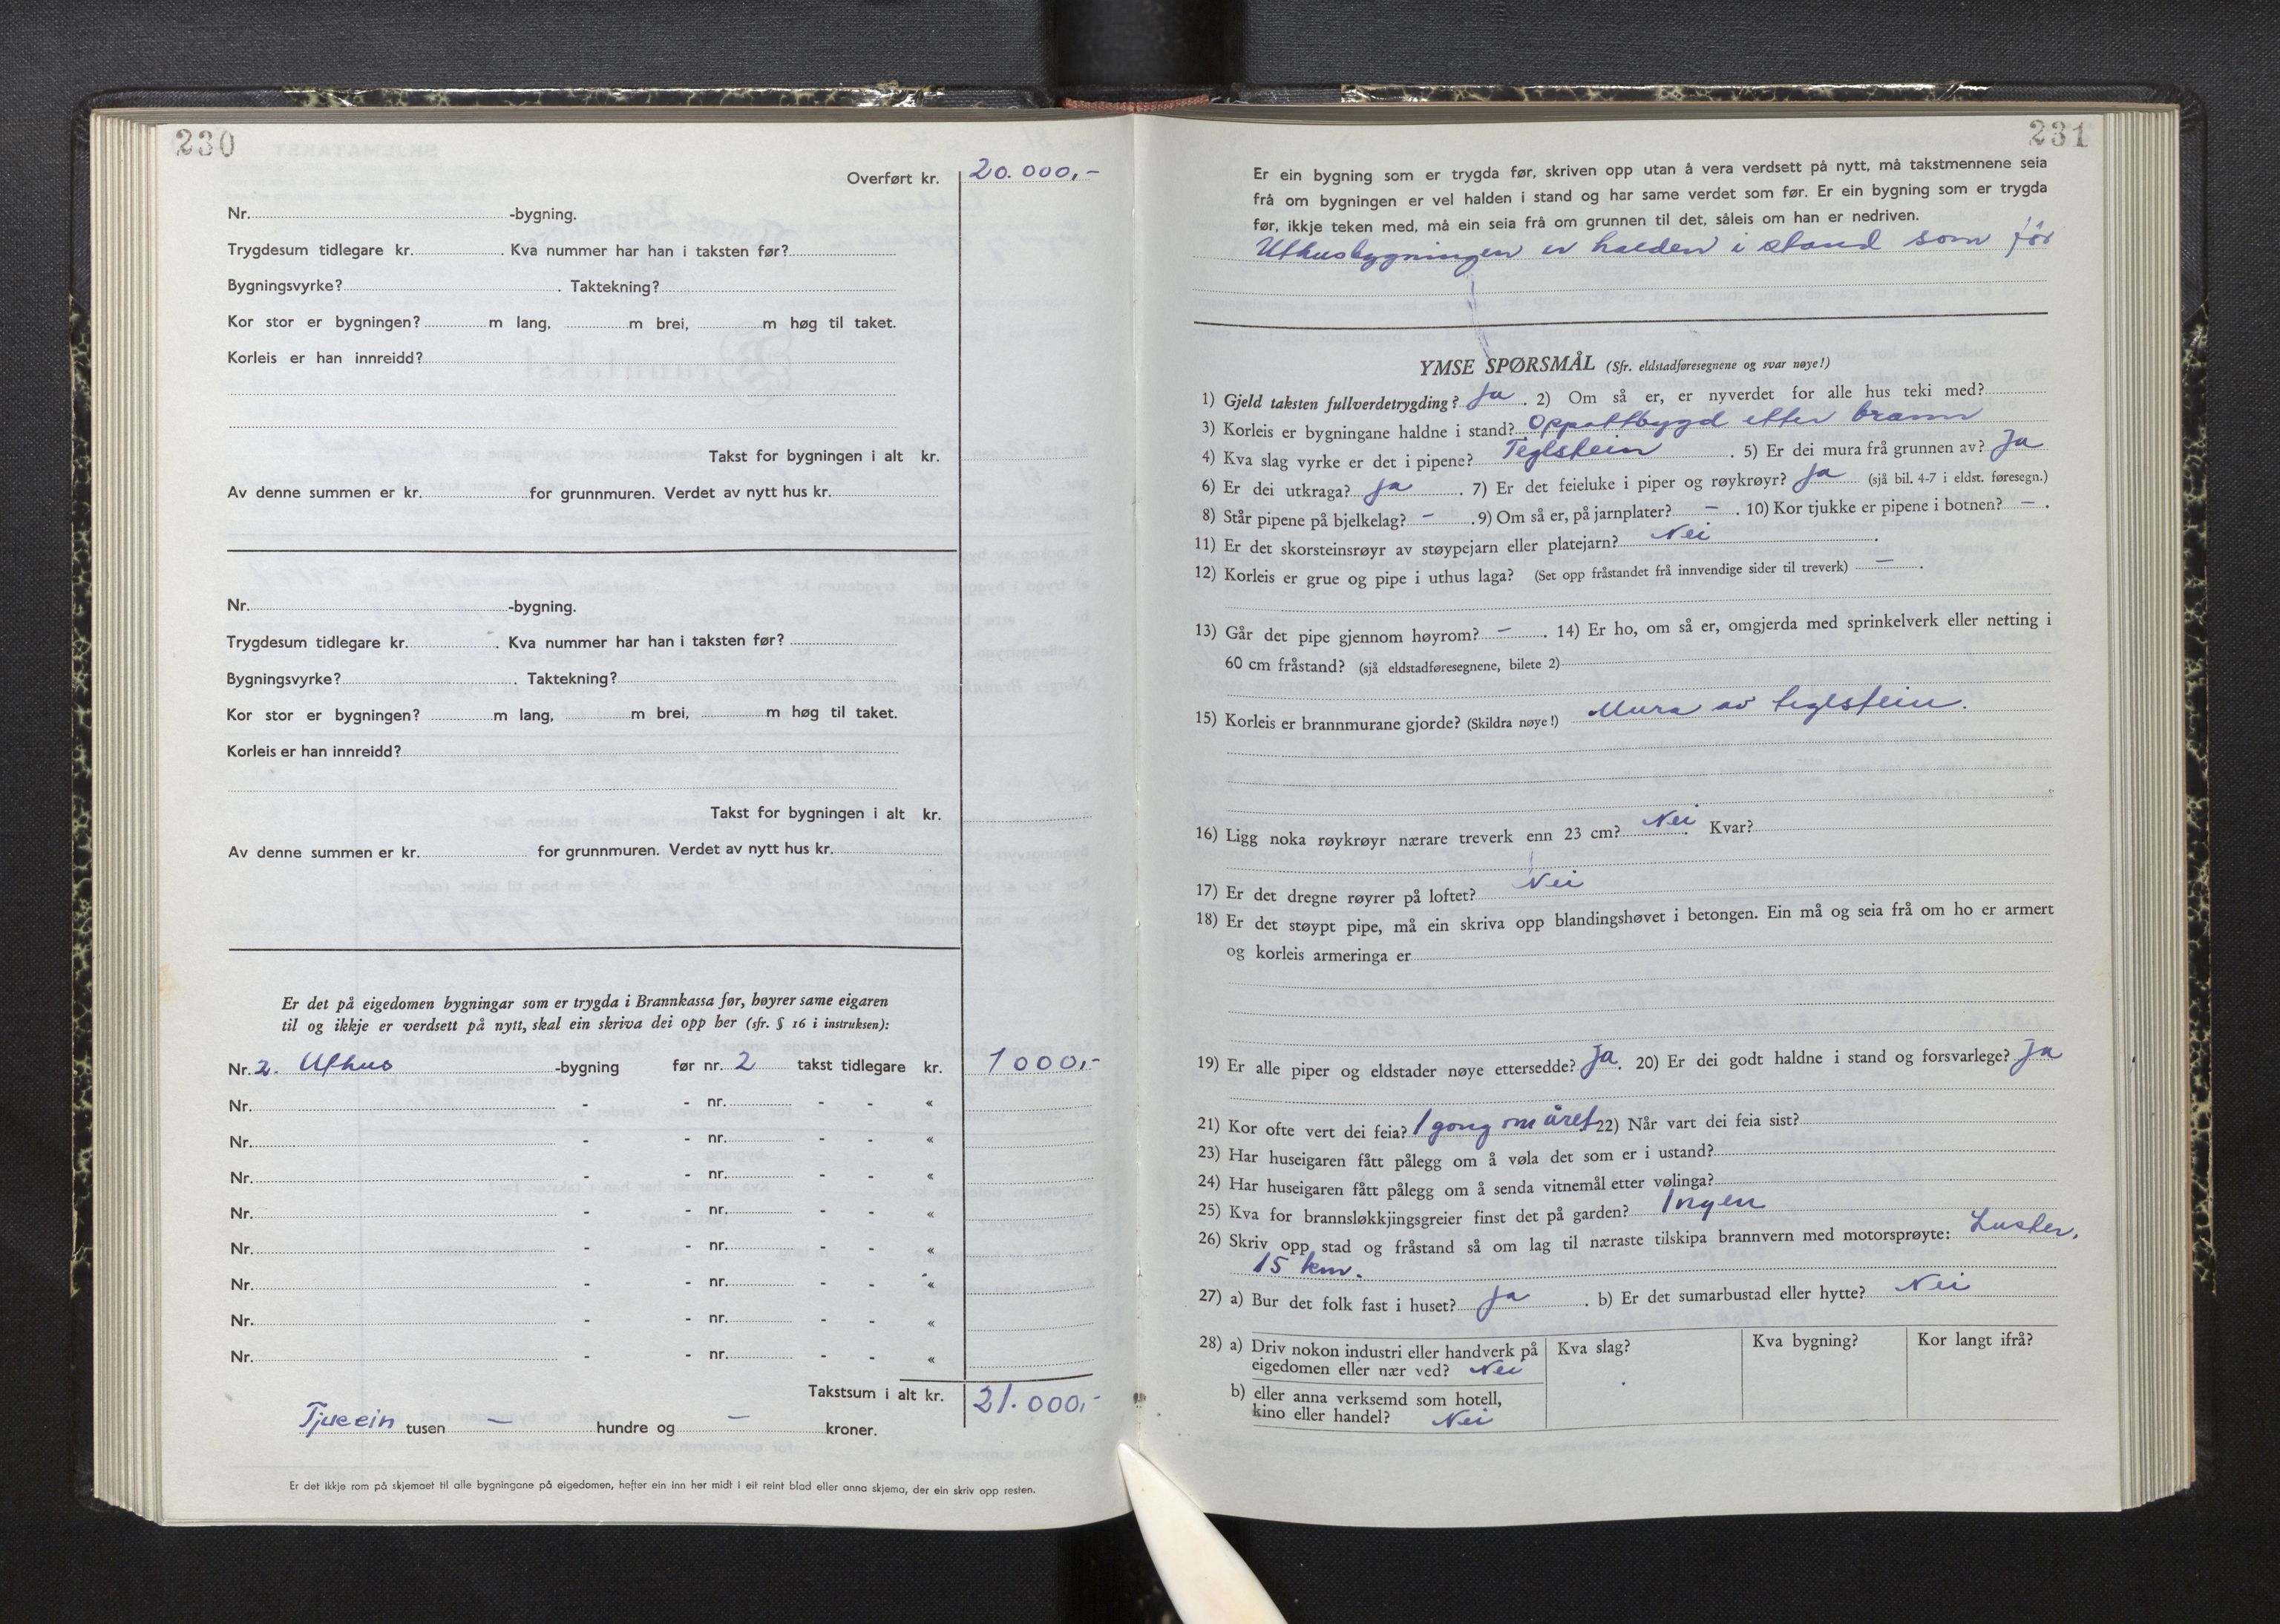 230
Overført kr. 20.000,-
Nr. -bygning.
Trygdesum tidlegare kr. . Kva nummer har han i taksten før?
Bygningsvyrke? . Taktekning?
Kor stor er bygningen? m lang, m brei, m høg til taket.
Korleis er han innreidd?
Takst for bygningen i alt kr.
Av denne summen er kr. for grunnmuren. Verdet av nytt hus kr.
Nr. -bygning.
Trygdesum tidlegare kr. . Kva nummer har han i taksten før?
Bygningsvyrke? . Taktekning?
Kor stor er bygningen? m lang, m brei, m høg til taket.
Korleis er han innreidd?
Takst for bygningen i alt kr.
Av denne summen er kr. for grunnmuren. Verdet av nytt hus kr.
Er det på eigedomen bygningar som er trygda i Brannkassa før, høyrer same eigaren
til og ikkje er verdsett på nytt, skal ein skriva dei opp her (sfr. § 16 i instruksen):
Nr. 2. Uthus -bygning før nr. 2 takst tidlegare kr. 1000,-
Nr. - - nr. - - «
Nr. - - nr. - - «
Nr. - - nr. - - «
Nr. - - nr. - - «
Nr. - - nr. - - «
Nr. - - nr. - - «
Nr. - - nr. - - «
Nr. - - nr. - - «
Takstsum i alt kr. 21.000,-
Tjueein tusen - hundre og - kroner.
Er det ikkje rom på skjemaet til alle bygningane på eigedomen, hefter ein inn her midt i eit reint blad eller anna skjema, der ein skriv opp resten.
231
Er ein bygning som er trygda før, skriven opp utan å vera verdsett på nytt, må takstmennene seia
frå om bygningen er vel halden i stand og har same verdet som før. Er ein bygning som er trygda
før, ikkje teken med, må ein seia frå om grunnen til det, såleis om han er nedriven.
Uthusbygningen er halden i stand som før
YMSE SPØRSMÅL (Sfr. eldstadføresegnene og svar nøye!)
1) Gjeld taksten fullverdetrygding? Ja . 2) Om så er, er nyverdet for alle hus teki med?
3) Korleis er bygningane haldne i stand? Oppattbygd etter brann
4) Kva slag vyrke er det i pipene? Teglstein . 5) Er dei mura frå grunnen av? Ja
6) Er dei utkraga? Ja . 7) Er det feieluke i piper og røykrøyr? Ja (sjå bil. 4-7 i eldst. føresegn.)
8) Står pipene på bjelkelag? - . 9) Om så er, på jarnplater? - . 10) Kor tjukke er pipene i botnen? - .
11) Er det skorsteinsrøyr av støypejarn eller platejarn? Nei .
12) Korleis er grue og pipe i uthus laga? (Set opp fråstandet frå innvendige sider til treverk) - .
13) Går det pipe gjennom høyrom? - . 14) Er ho, om så er, omgjerda med sprinkelverk eller netting i
60 cm fråstand? (sjå eldstadføresegnene, bilete 2)
15) Korleis er brannmurane gjorde? (Skildra nøye!) Mura av teglstein.
16) Ligg noka røykrøyr nærare treverk enn 23 cm? Nei . Kvar?
17) Er det dregne røyrer på loftet? Nei
18) Er det støypt pipe, må ein skriva opp blandingshøvet i betongen. Ein må og seia frå om ho er armert
og korleis armeringa er
19) Er alle piper og eldstader nøye ettersedde? Ja. 20) Er dei godt haldne i stand og forsvarlege? Ja
21) Kor ofte vert dei feia? 1 gong om året 22) Når vart dei feia sist?
23) Har huseigaren fått pålegg om å vøla det som er i ustand?
24) Har huseigaren fått pålegg om å senda vitnemål etter vølinga?
25) Kva for brannsløkkjingsgreier finst det på garden? Ingen
26) Skriv opp stad og fråstand så om lag til næraste tilskipa brannvern med motorsprøyte: Luster,
15 km.
27) a) Bur det folk fast i huset? Ja . b) Er det sumarbustad eller hytte? Nei
28) a) Driv nokon industri eller handverk på Kva slag? Kva bygning? Kor langt ifrå?
eigedomen eller nær ved? Nei
b) eller anna verksemd som hotell,
kino eller handel? Nei